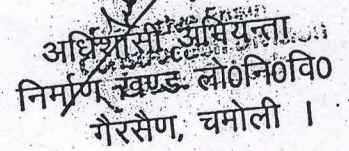 अधिशासी अभियन्ता
निर्माण खण्ड लो0नि0वि0
गैरसैण, चमोली ।